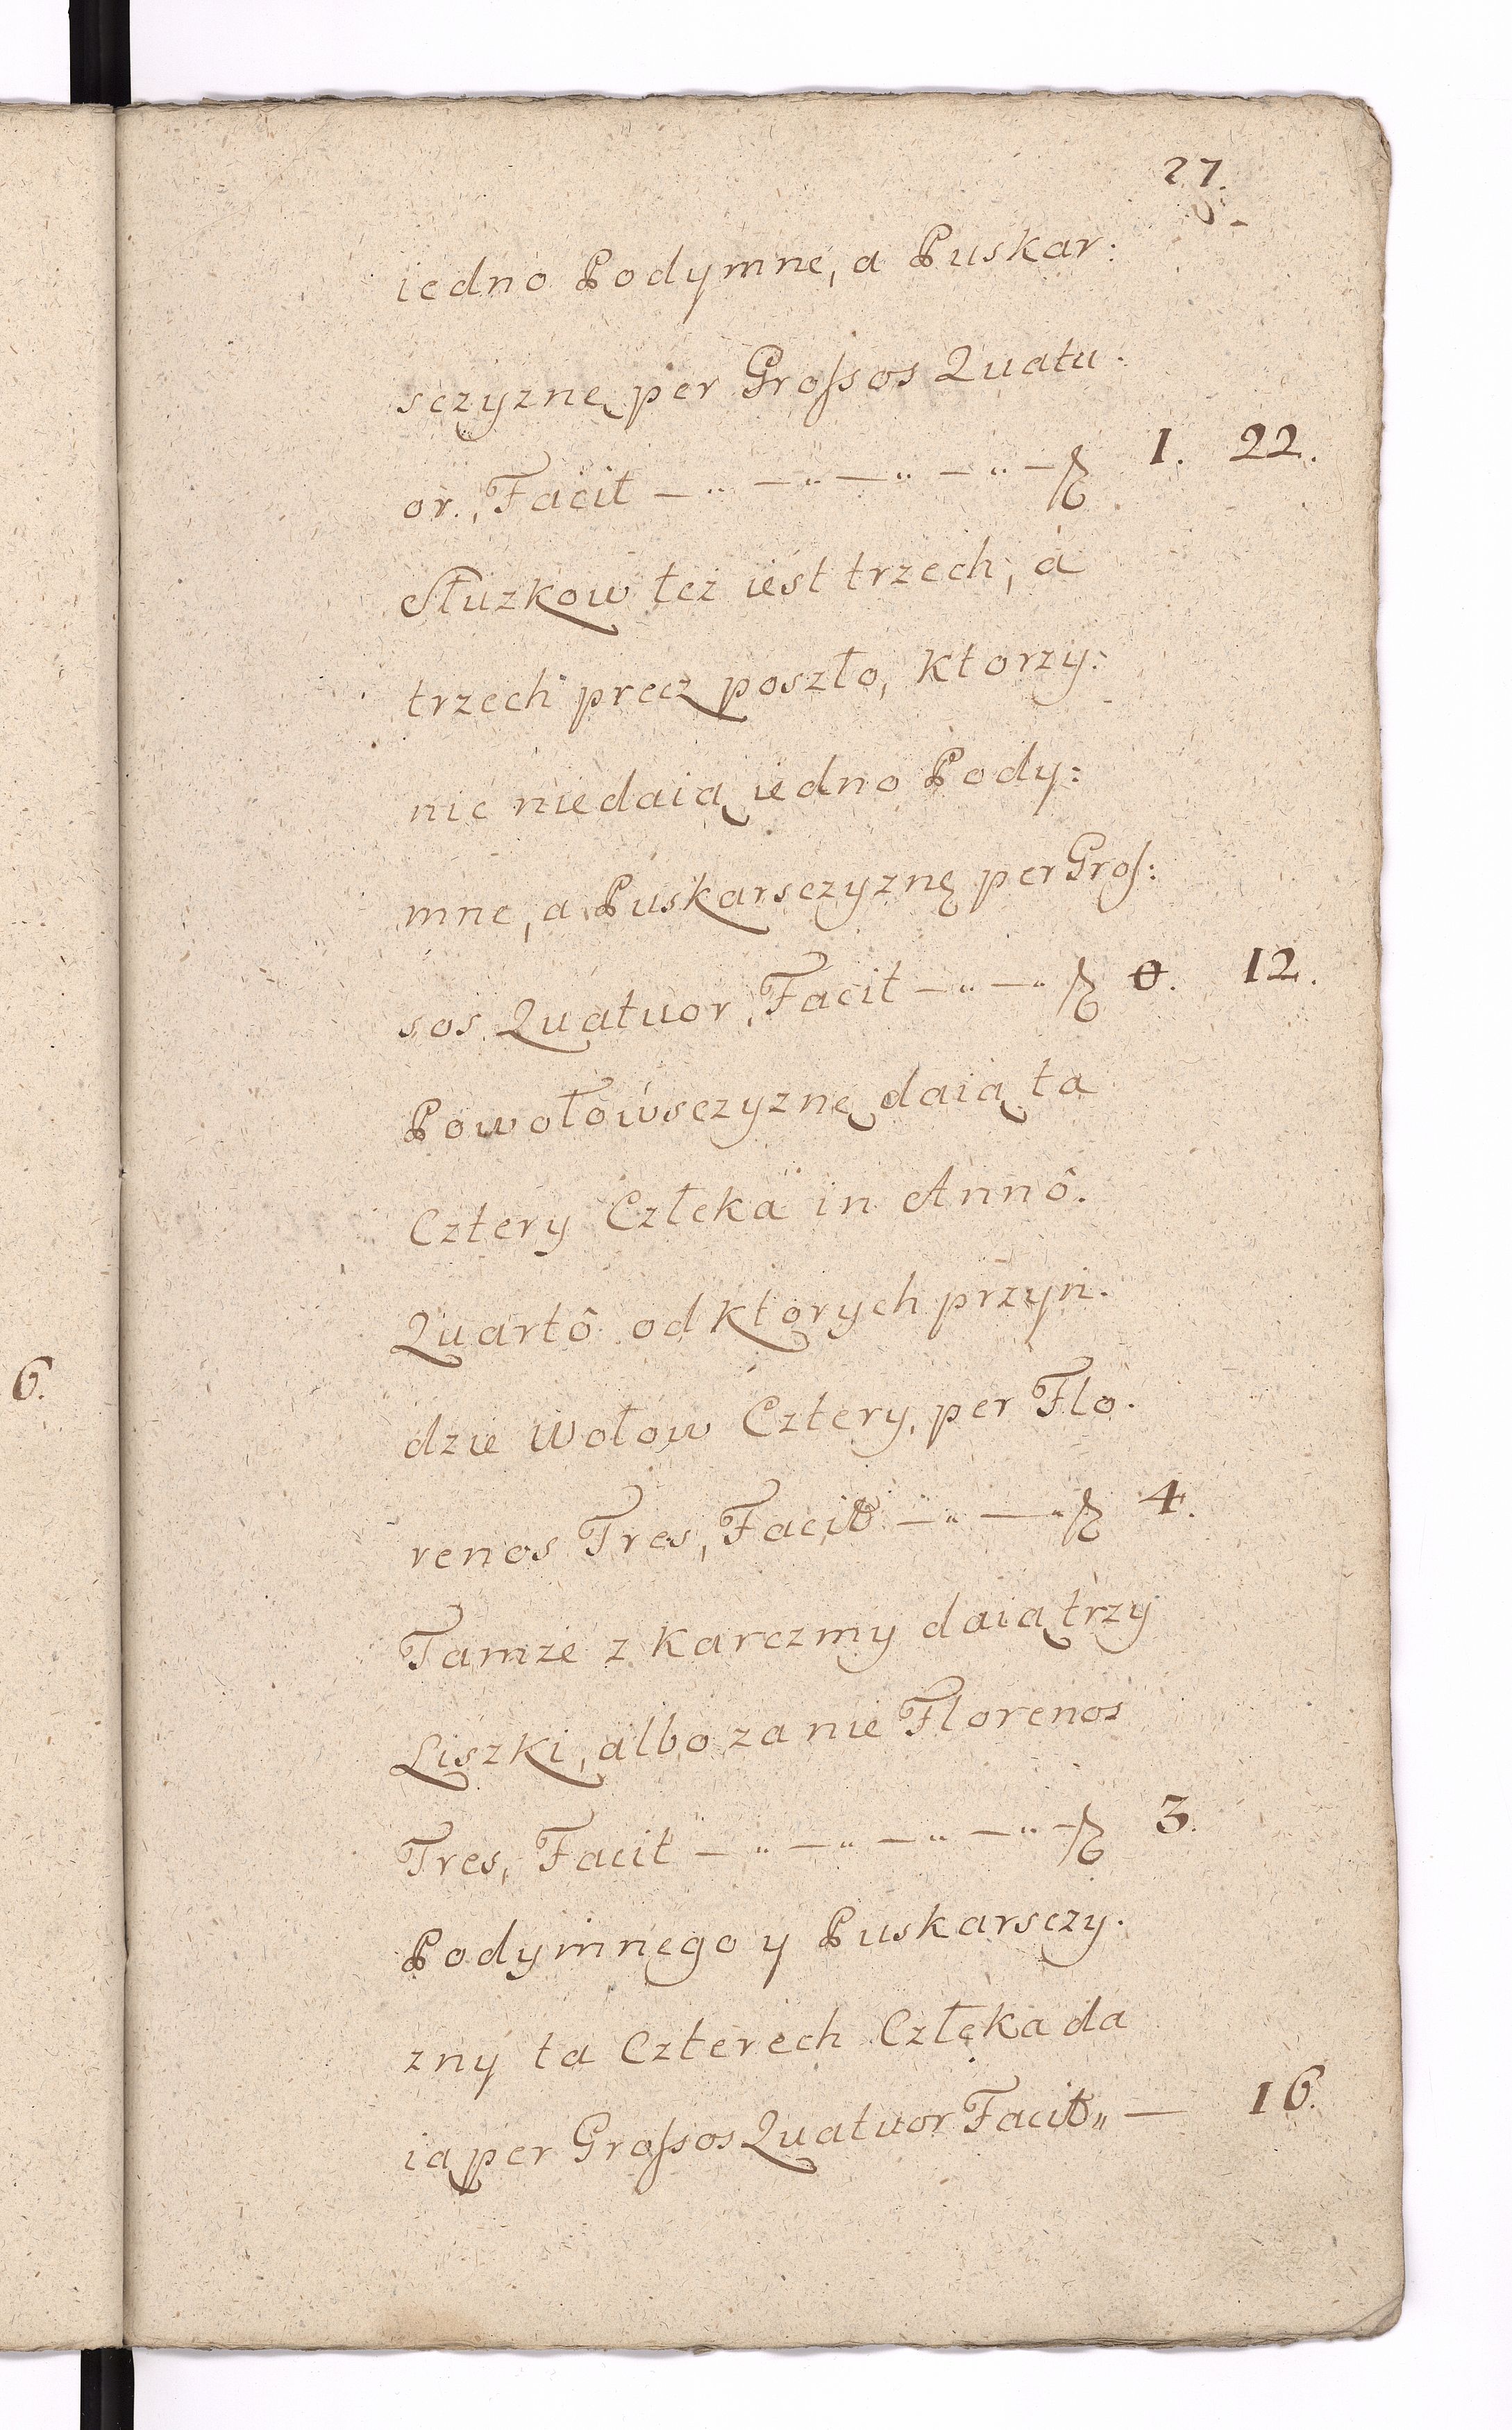 27.
iedno Podymne, a Puskar:
sczyznę per Grossos Quatu.
or., Facit — „ — „ — „ — „ — 1. 22.
Służkow też iest trzech, á
trzech precz poszło, Ktorzy:
nic niedaią iedno Pody:
mne, a Puskarsczyznę per Gros:
sos Quatuor, Facit — „ — „ 0. 12.
Powołówsczyznę daią ta
Cztery Człeka in Annô.
Quartô od Ktorych przyń.
dzie Wołow Cztery, per Flo.
renos Tres, Facit — „ — „ 4.
Tamże z Karczmy daią trzy
Liszki, albo za nie Florenos
Tres, Facit — „ — „ — „ — „ — 3.
Podymnego y Puskarsczy.
zny ta Czterech Człeka da
ią per Grossos Quatuor Facit „ — 16.
6.